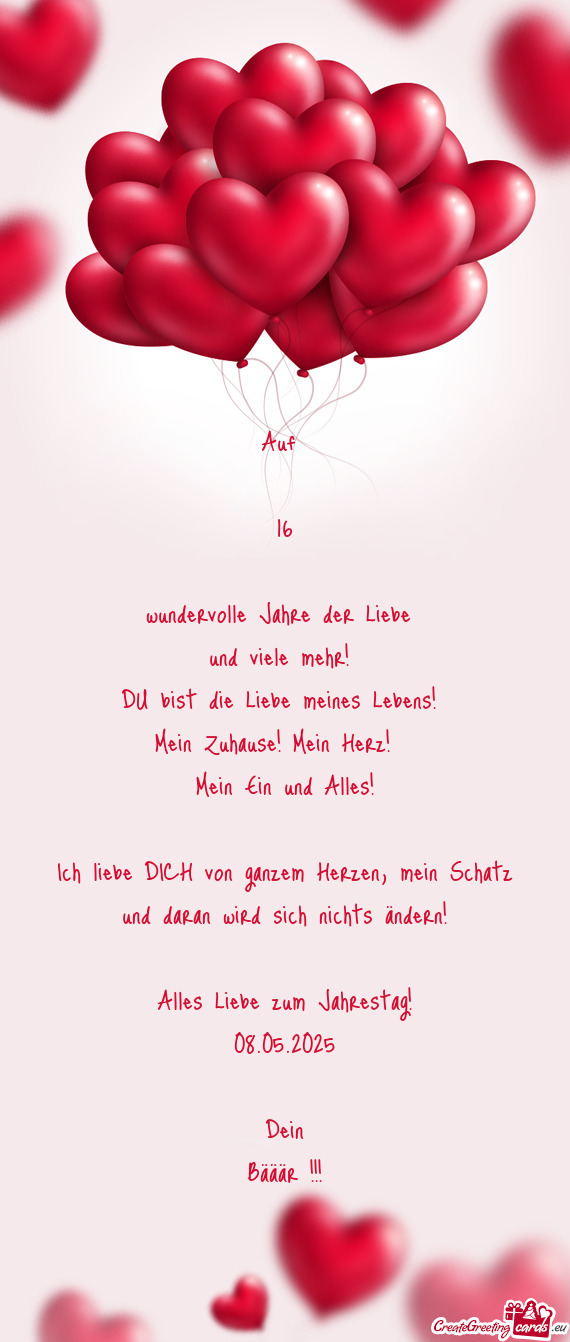 Auf
16
wundervolle Jahre der Liebe
und viele mehr!
DU bist die Liebe meines Lebens!
Mein Zuhause! Mein Herz!
Mein Ein und Alles!
Ich liebe DICH von ganzem Herzen, mein Schatz
und daran wird sich nichts ändern!
Alles Liebe zum Jahrestag!
08.05.2025
Dein
Bäääär !!!
CreateGreetingcards.eu